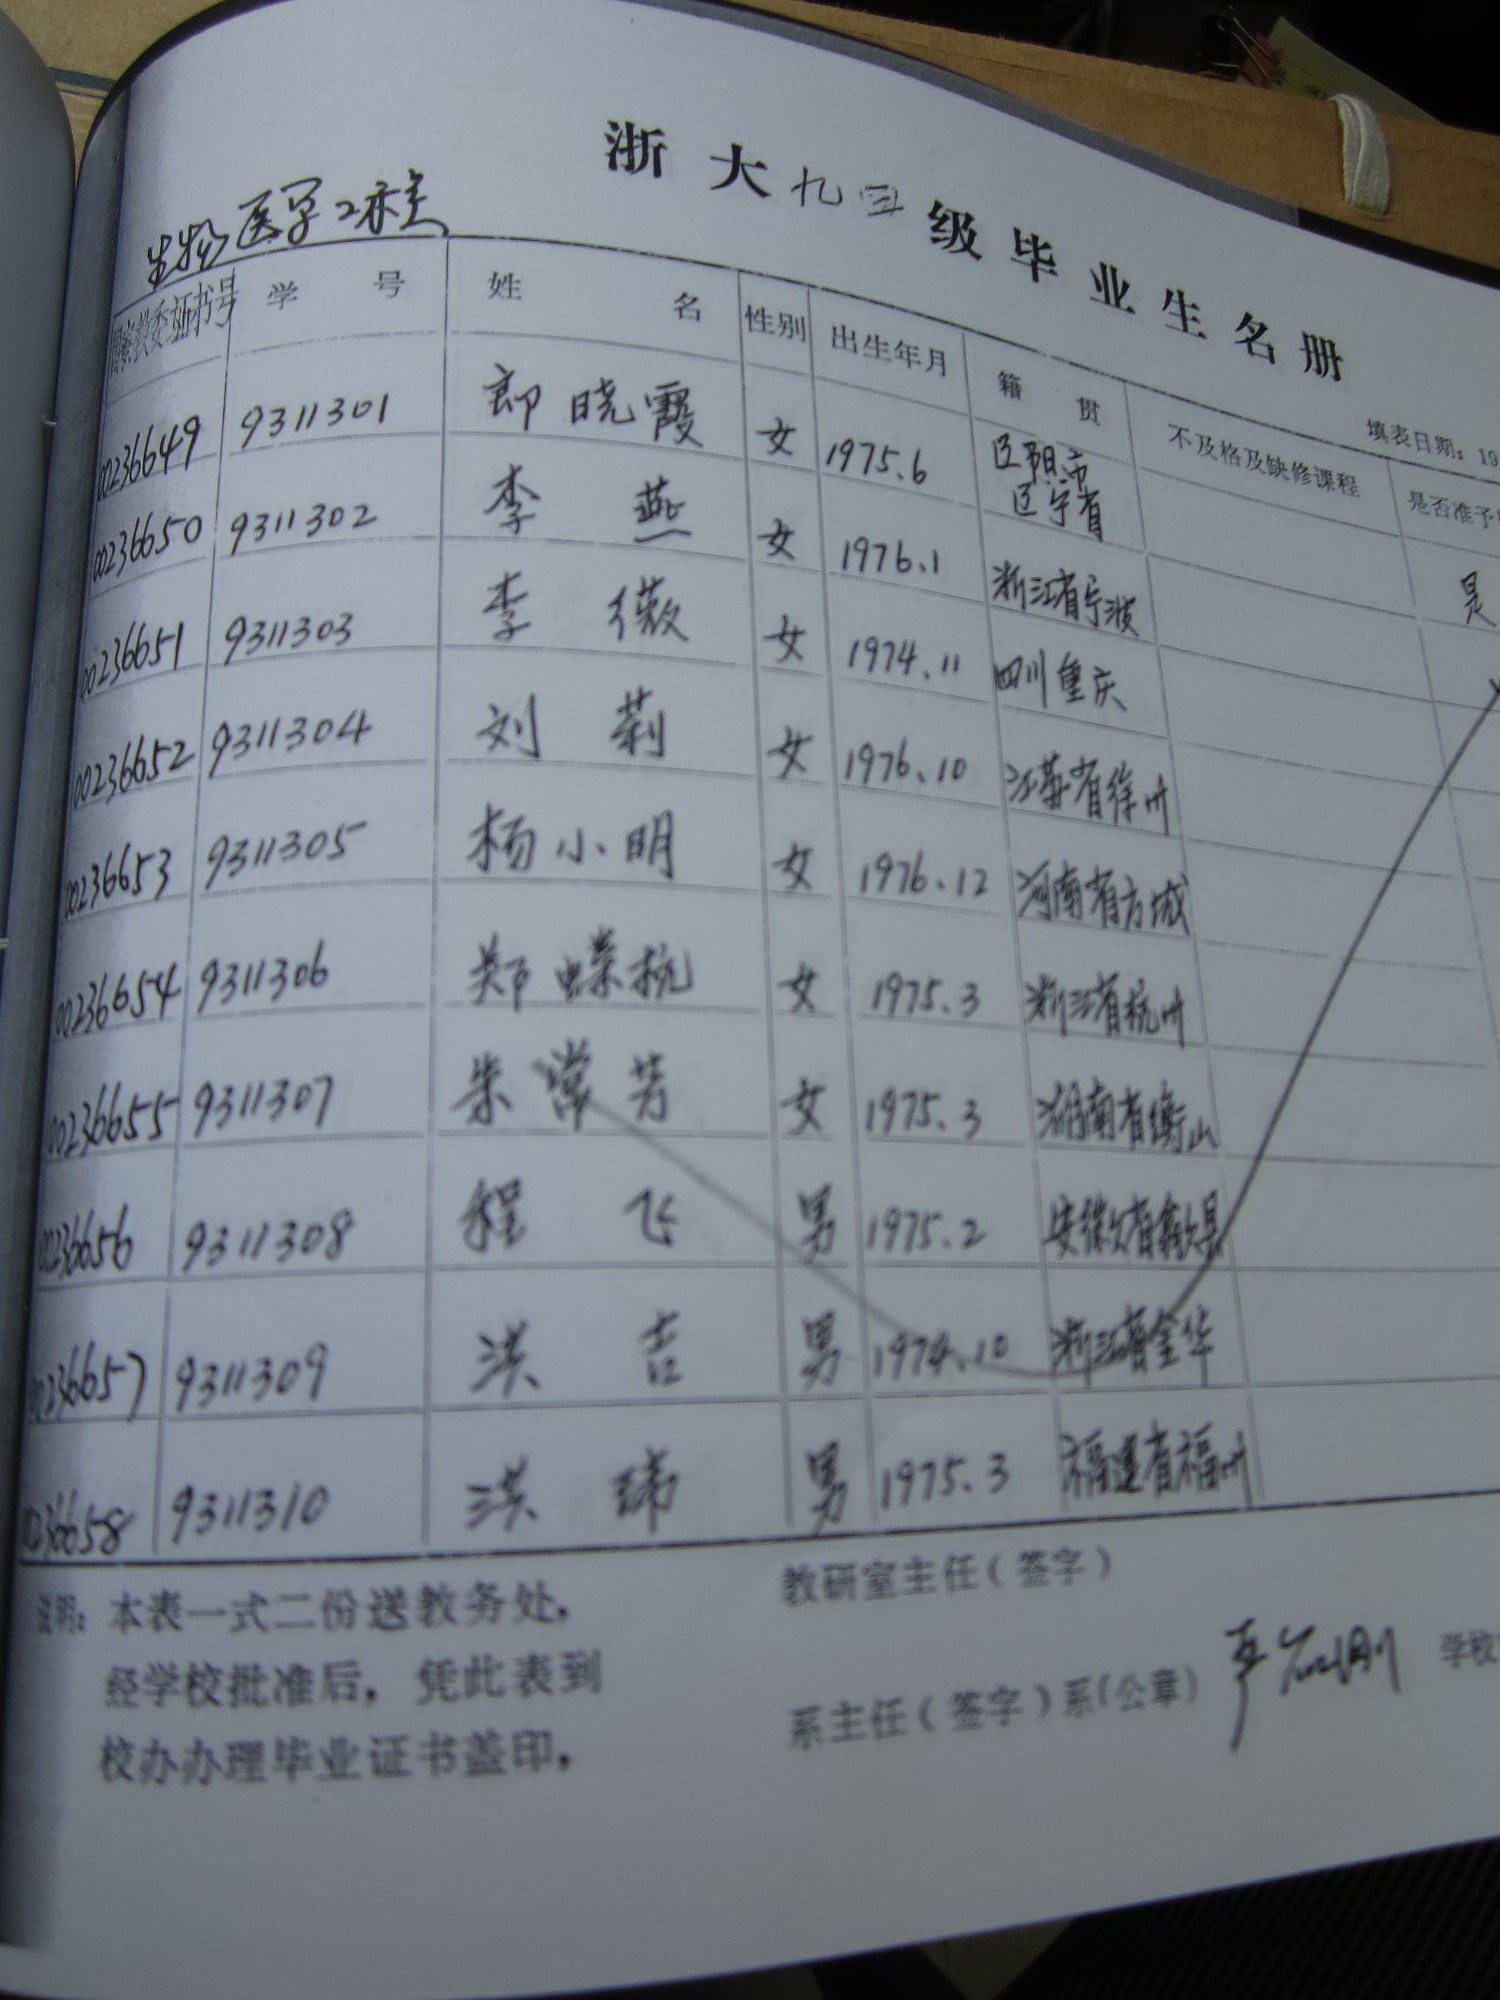 浙大九三级毕业生名册
生物医学工程
填表日期：19
国家教委证书号 学号 姓名 性别 出生年月 籍贯 不及格及缺修课程 是否准予
00236649 9311301 郎晓霞 女 1975.6 辽阳市辽宁省 是
00236650 9311302 李燕 女 1976.1 浙江省宁波
00236651 9311303 李薇 女 1974.11 四川重庆
00236652 9311304 刘莉 女 1976.10 江苏省徐州
00236653 9311305 杨小明 女 1976.12 河南省方城
00236654 9311306 郑蝶杭 女 1975.3 浙江省杭州
00236655 9311307 朱常芳 女 1975.3 湖南省衡山
00236656 9311308 程飞 男 1975.2 安徽省歙县
00236657 9311309 洪吉 男 1974.10 浙江省金华
00236658 9311310 洪 男 1975.3 福建省福州
说明：本表一式二份送教务处，
经学校批准后，凭此表到
校办办理毕业证书盖印。
教研室主任（签字）
系主任（签字）系（公章） 学校